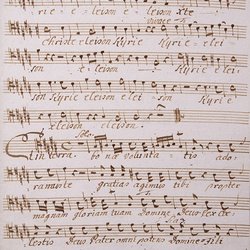 rie eleison xte
christe eleison Kyrie elei
son eleison Kyrie elei
son Kyrie eleison elei son Kyrie
eleison.
in terra bonæ volunta tis ado
ramuste gratias agimus tibi propter
magnam gloriam tuam Domine Deus
lestis Deus Pater omnipotens Domine fili